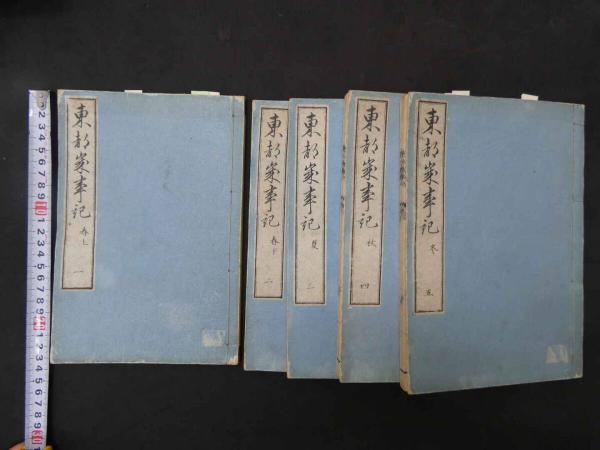 東都歳事記 春上 一
東都歳事記 春下 二
東都歳事記 夏 三
東都歳事記 秋 四
東都歳事記 冬 五
1 2 3 4 5 6 7 8 9 10 1 2 3 4 5 6 7 8 9 20 1 2 3 4